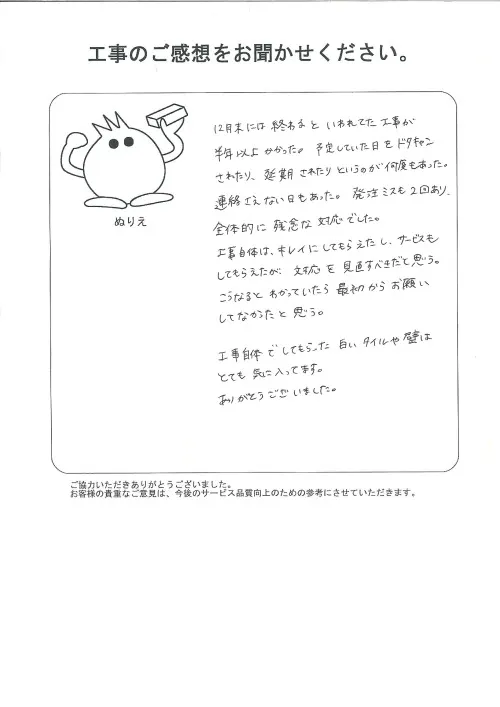 工事のご感想をお聞かせください。
ぬりえ
12月末には終わると いわれてた工事が
半年以上かかった。予定していた日をドタキャン
されたり、延期されたりというのが何度もあった。
連絡さえない日もあった。発注ミスも2回あり、
全体的に残念な対応でした。
工事自体は、キレイにしてもらえたし、サービスも
してもらえたが、対応を見直すべきだと思う。
こうなるとわかっていたら最初からお願い
してなかったと思う。
工事自体でしてもらった白いタイルや壁は
とても気に入ってます。
ありがとうございました。
ご協力いただきありがとうございました。
お客様の貴重なご意見は、今後のサービス品質向上のための参考にさせていただきます。